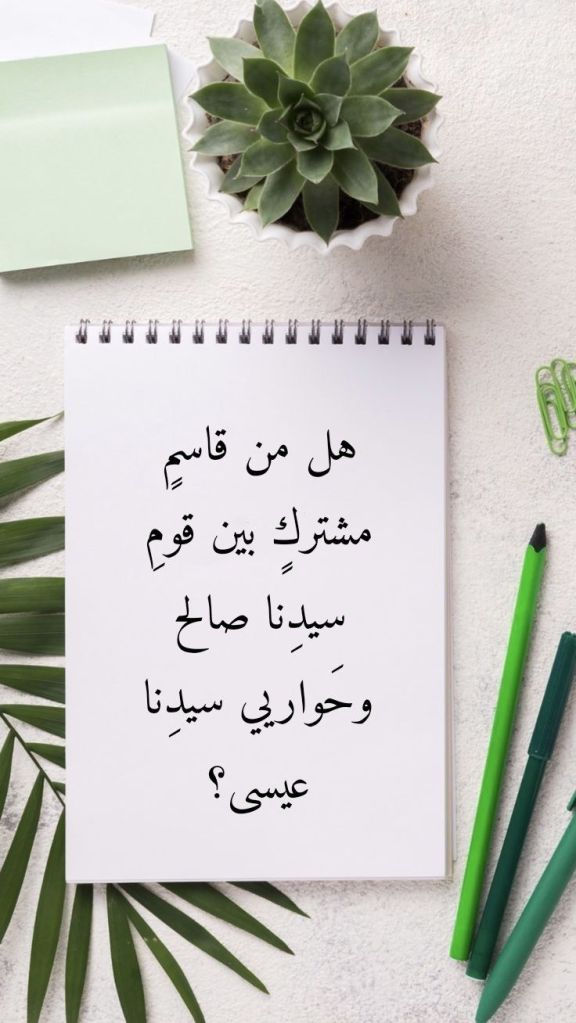 هل من قاسمٍ
مشتركٍ بين قومِ
سيدِنا صالح
وحَواريي سيدِنا
عيسى؟